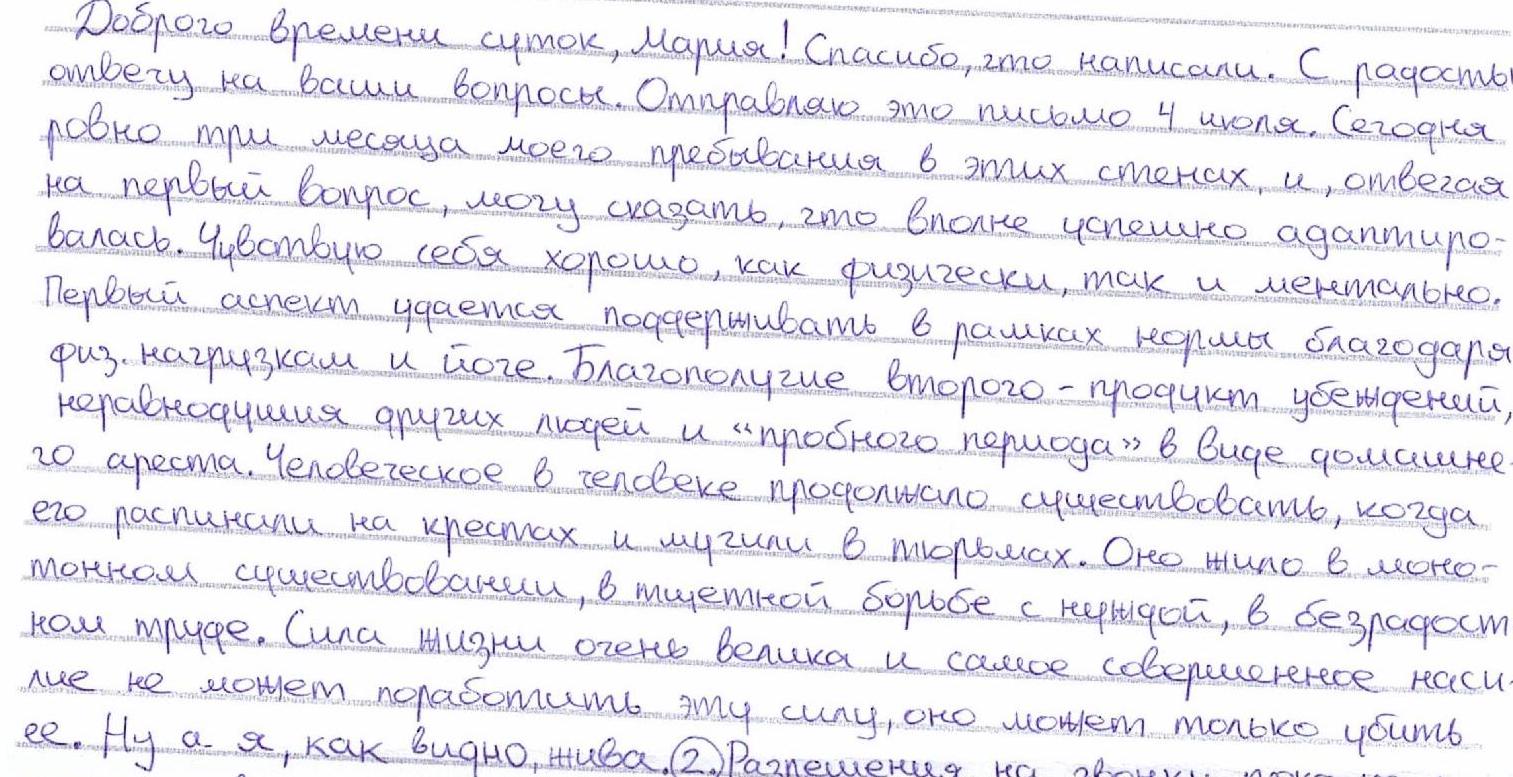 Доброго времени суток, Мария! Спасибо, что написали. С радостью
отвечу на ваши вопросы. Отправляю это письмо 4 июля. Сегодня
ровно три месяца моего пребывания в этих стенах, и, отвечая
на первый вопрос, могу сказать, что вполне успешно адаптиро-
валась. Чувствую себя хорошо, как физически, так и ментально.
Первый аспект удается поддерживать в рамках нормы благодаря
физ. нагрузкам и йоге. Благополучие второго - продукт убеждений,
неравнодушия других людей и "пробного периода" в виде домашне-
го ареста. Человеческое в человеке продолжало существовать, когда
его распинали на крестах и мучили в тюрьмах. Оно жило в моно-
тонном существовании, в тщетной борьбе с нуждой, в безрадост
ном труде. Сила жизни очень велика и самое совершенное наси-
лие не может поработить эту силу, оно может только убить
ее. Ну а я, как видно, жива. 2. Разрешения на звонки пока